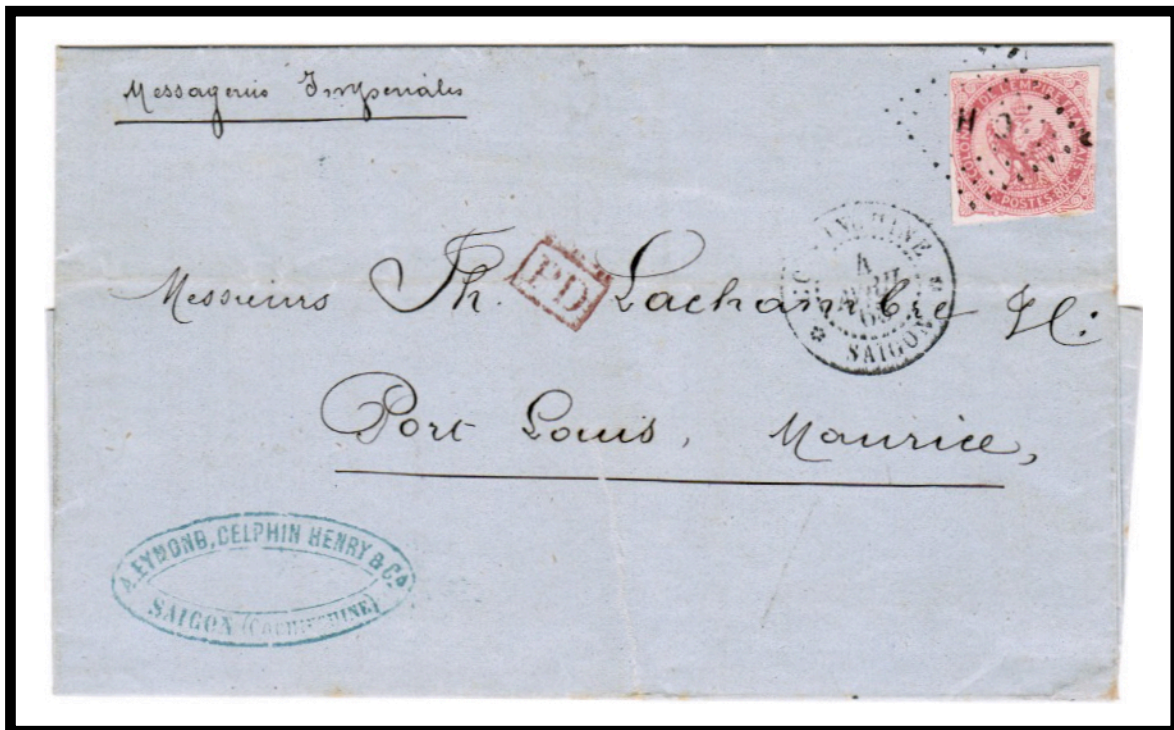 Messageries Imperiales
COLONIES DE L'EMPIRE FRANÇAIS
POSTES 80c
COCHINCHINE
4
AVRIL
SAIGON
PD
Messieurs Th. Lachambre
Port Louis, Maurice,
A. EYMOND, DELPHIN HENRY & Co
SAIGON (COCHINCHINE)